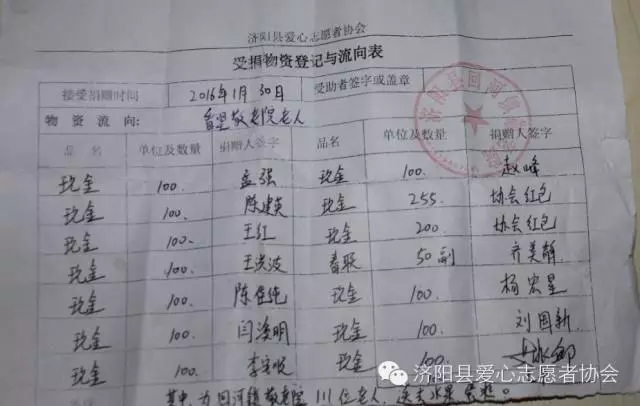 济阳县爱心志愿者协会
受捐物资登记与流向表
接受捐赠时间 2016年1月30日 受助者签字或盖章
物资流向: 敬老院老人
品名 单位及数量 捐赠人签字 品名 单位及数量 捐赠人签字
现金 100. 孟强 现金 100. 赵峰
现金 100. 陈建英 现金 255 协会红包
现金 100. 王红 现金 200 协会红包
现金 100. 王洪波 春联 50副 齐美静
现金 100. 陈佳纯 现金 100. 杨宏星
现金 100. 闫洪明 现金 100. 刘国新
现金 100. 李 现金 100.
其中为回河镇敬老院111位老人, 送去水果
济阳县回河镇
济阳县爱心志愿者协会